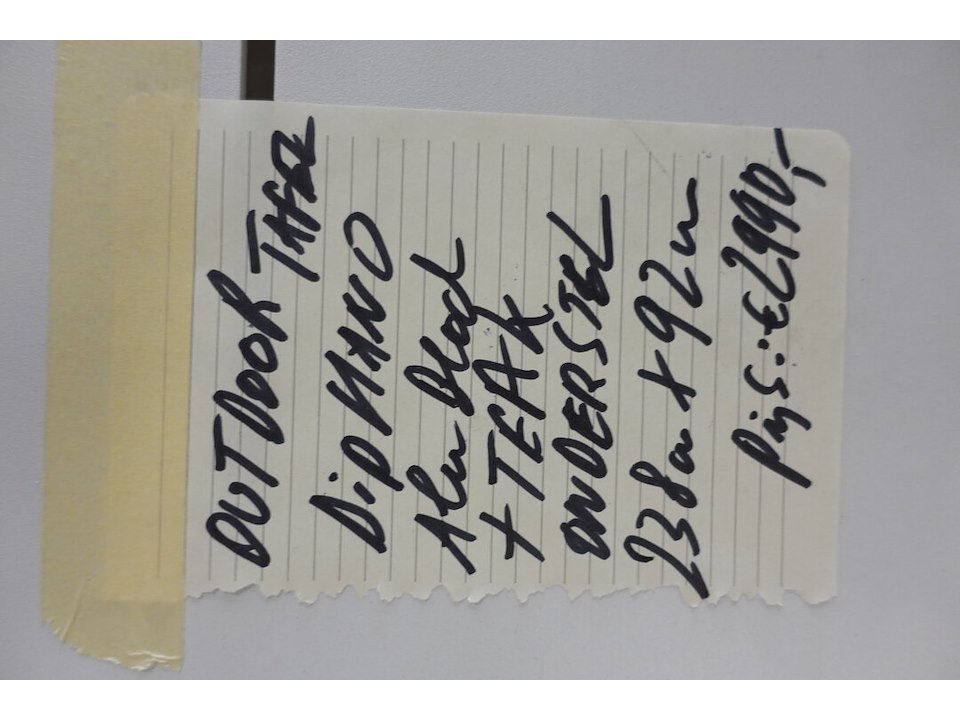 OUTDOOR TAFEL
DiPHANO
Alu Blad
+ TEAK
ONDERSTEL
238cm x 92cm
Prijs: €2990,-